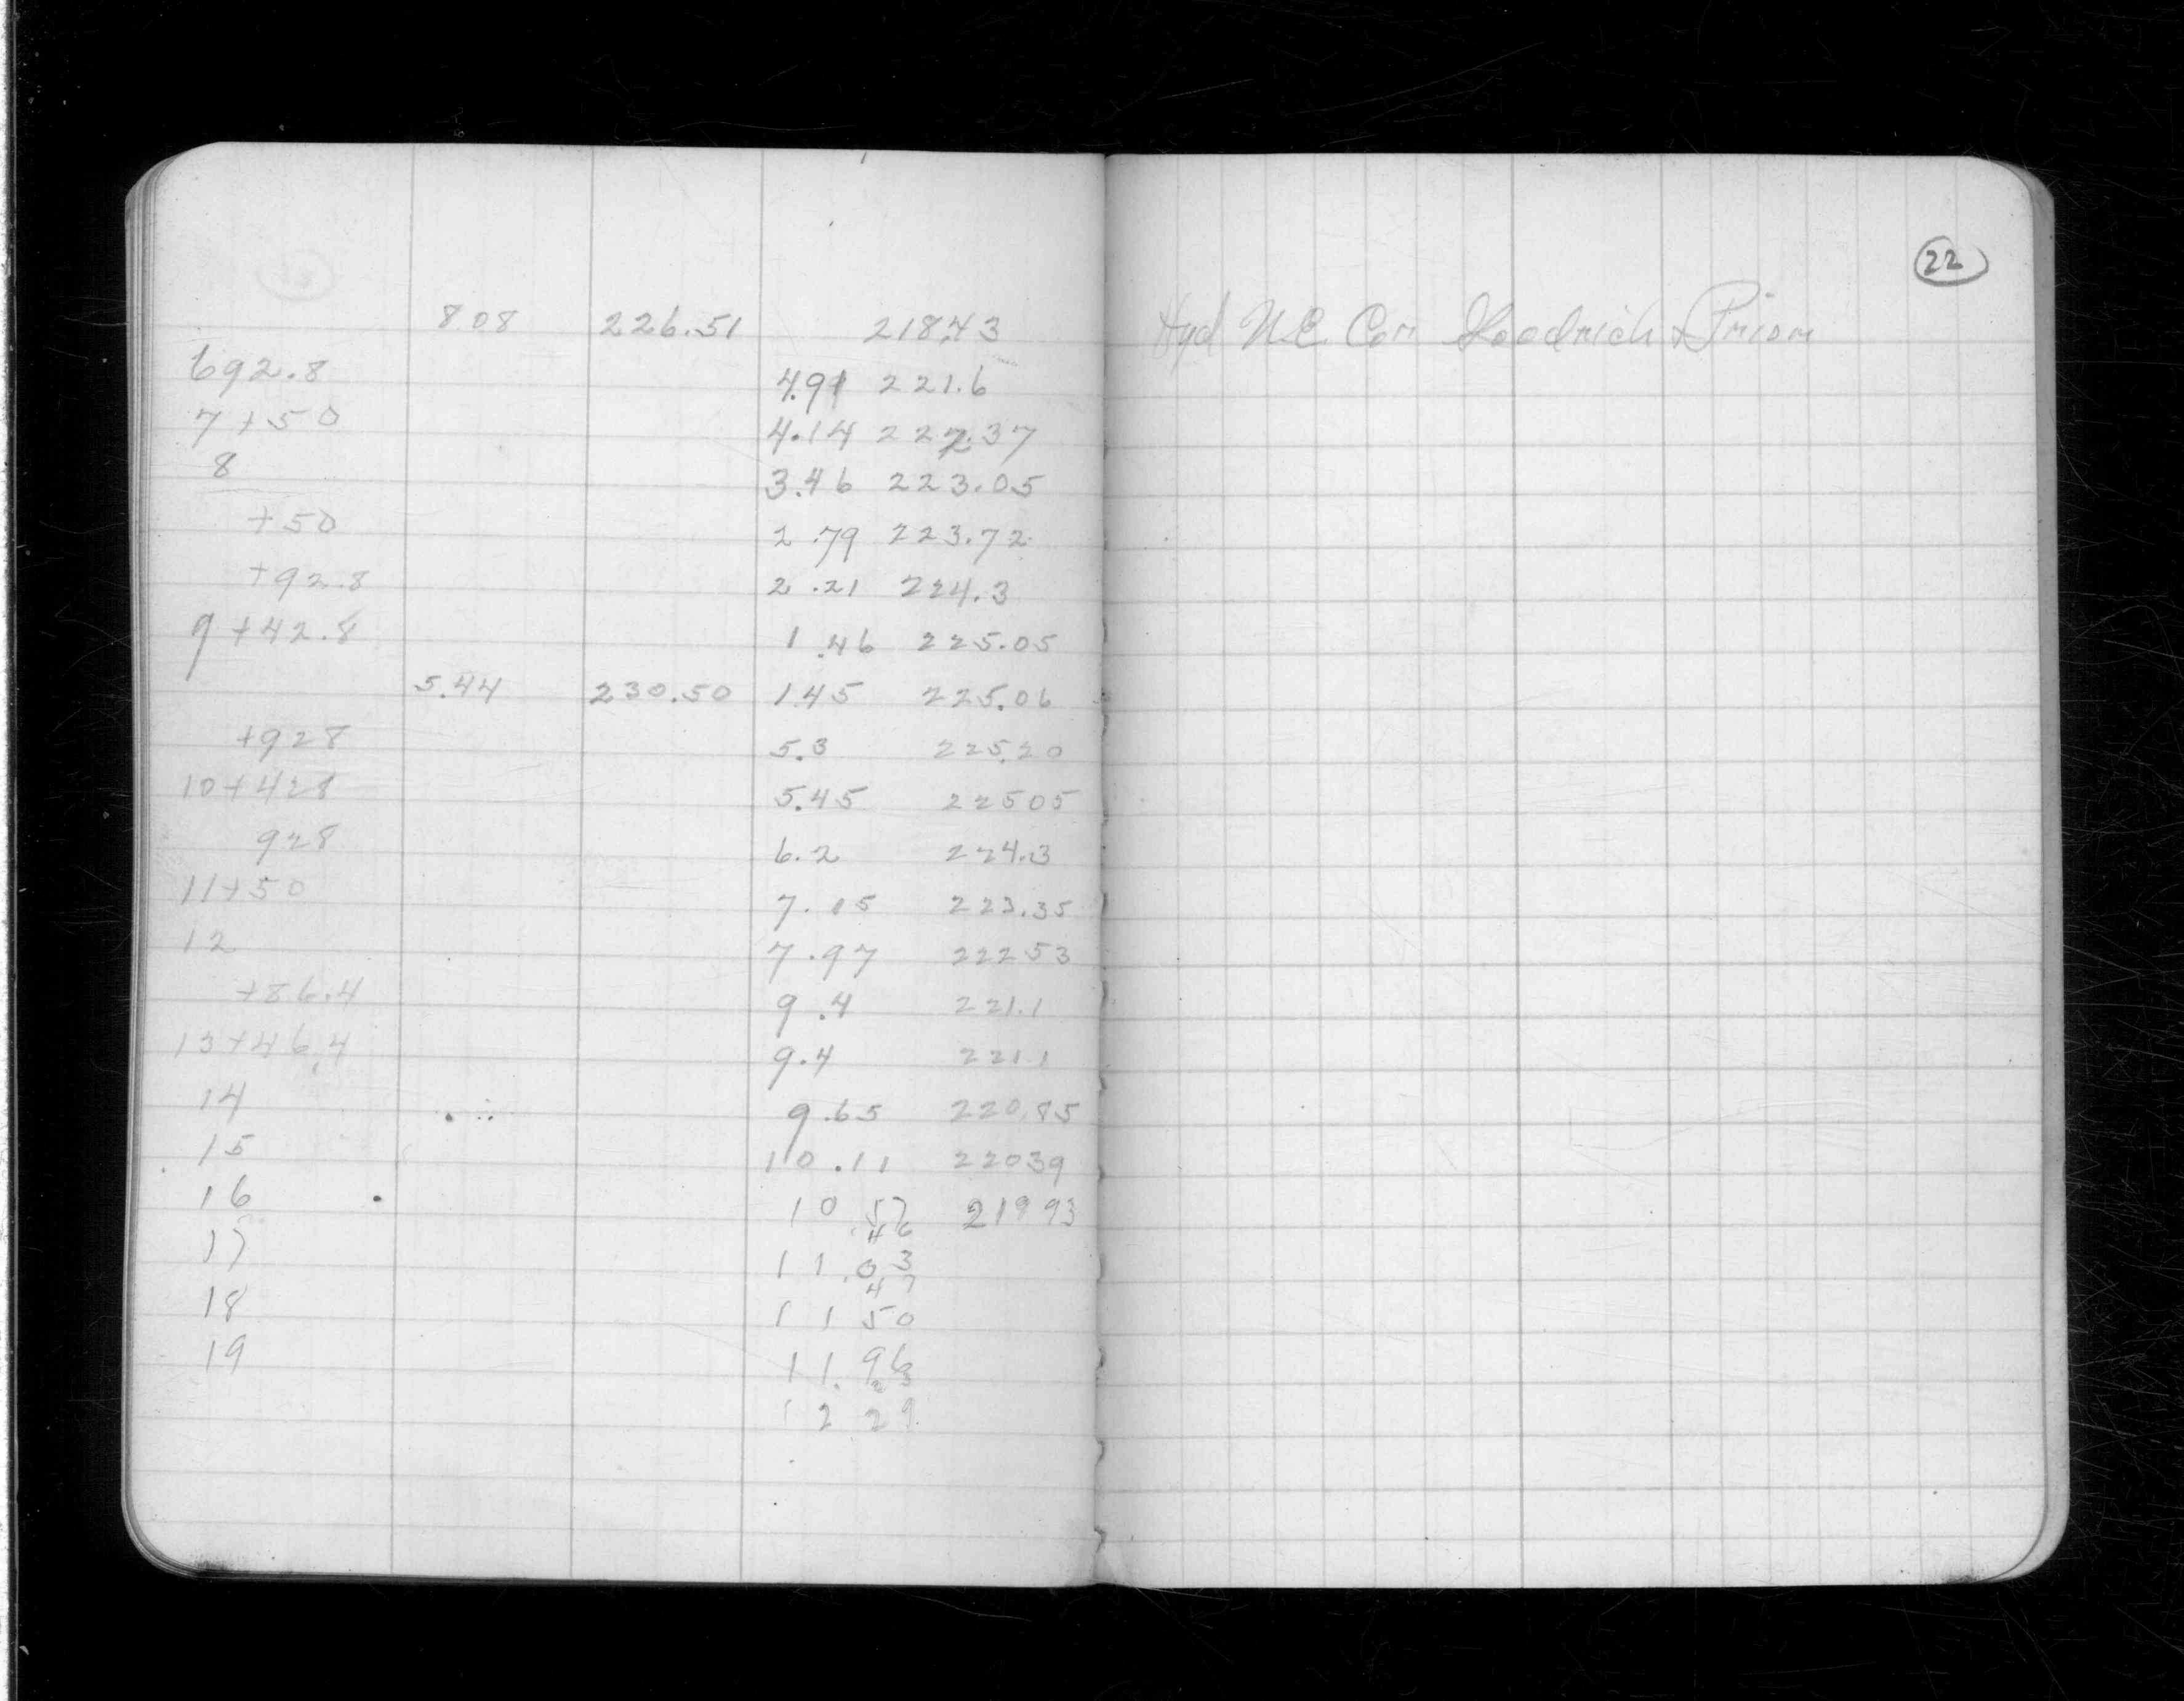 22
8.08 226.51 218.43 Hyd N.E. Cor Goodrich & Prior
692.8 4.91 221.6
7+50 4.14 222.37
8 3.46 223.05
+50 2.79 223.72
+92.8 2.21 224.3
9+42.8 1.46 225.05
5.44 230.50 1.45 225.06
+928 5.3 225.20
10+428 5.45 22505
928 6.2 224.3
11+50 7.15 223.35
12 7.97 22253
+86.4 9.4 221.1
13+46.4 9.4 221.1
14 9.65 220.85
15 10.11 22039
16 10 57 219 93
46
17 11.03
47
18 11 50
19 11.96
33
12 29